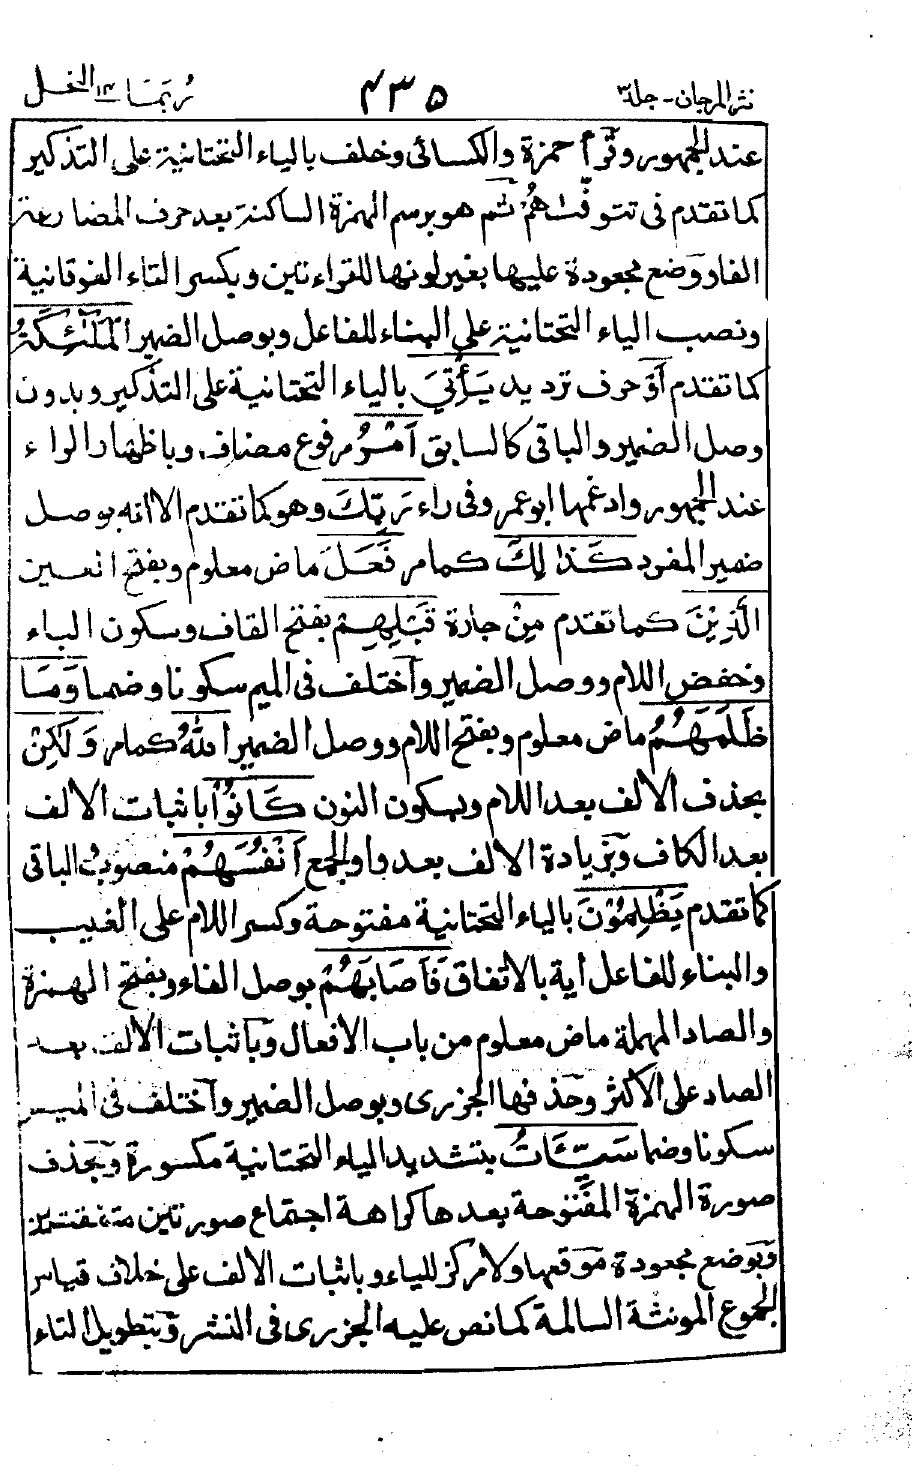 نثر المرجان - جلد ٣ ٤٣٥ رُبَمَا ١٤ النحل
عند الجمهور وقرأ حمزة والكسائى وخلف بالياء التحتانية على التذكير
كما تقدم فى تتوفّٰىهُمُ ثم هو برسم الهمزة الساكنة بعد حرف المضارعة
الفا ووضع مجعودة عليها بغير لونها للقراءتين وبكسر التاء الفوقانية
ونصب الياء التحتانية على البناء للفاعل وبوصل الضمير الْمَلٰٓئِكَةُ
كما تقدم اَوْ حرف ترديد يَاْتِيَ بالياء التحتانية على التذكير وبدون
وصل الضمير والباقى كالسابق اَمْرُ مرفوع مضاف وباظهار الراء
عند الجمهور وادغمها ابو عمر وفى راء رَبِّكَ وهو كما تقدم الا انه بوصل
ضمير المفرد كَذٰلِكَ كما مر فَعَلَ ماض معلوم وبفتح العين
الَّذِيْنَ كما تقدم مِنْ جارة قَبْلِهِمْ بفتح القاف وسكون الباء
وخفض اللام ووصل الضمير واختلف فى الميم سكونا وضما وَمَا
ظَلَمَهُمُ ماض معلوم وبفتح اللام ووصل الضمير اللّٰهُ كما مر وَلٰكِنْ
بحذف الالف بعد اللام وبسكون النون كَانُوْٓا باثبات الالف
بعد الكاف وبزيادة الالف بعد واو الجمع اَنْفُسَهُمْ منصوب الباقى
كما تقدم يَظْلِمُوْنَ بالياء التحتانية مفتوحة وكسر اللام على الغيب
والبناء للفاعل اية بالاتفاق فَاَصَابَهُمْ بوصل الفاء وبفتح الهمزة
والصاد المهملة ماض معلوم من باب الافعال وباثبات الالف بعد
الصاد على الاكثر وحذفها الجزرى وبوصل الضمير واختلف فى الميم
سكونا وضما سَيِّئَاتُ بتشديد الياء التحتانية مكسورة وبحذف
صورة الهمزة المفتوحة بعدها كراهة اجتماع صورتين متفقتين
وبوضع مجعودة موقعها ولا مركز للياء وباثبات الالف على خلاف قياس
الجموع المونثة السالمة كما نص عليه الجزرى فى النشر وبتطويل التاء